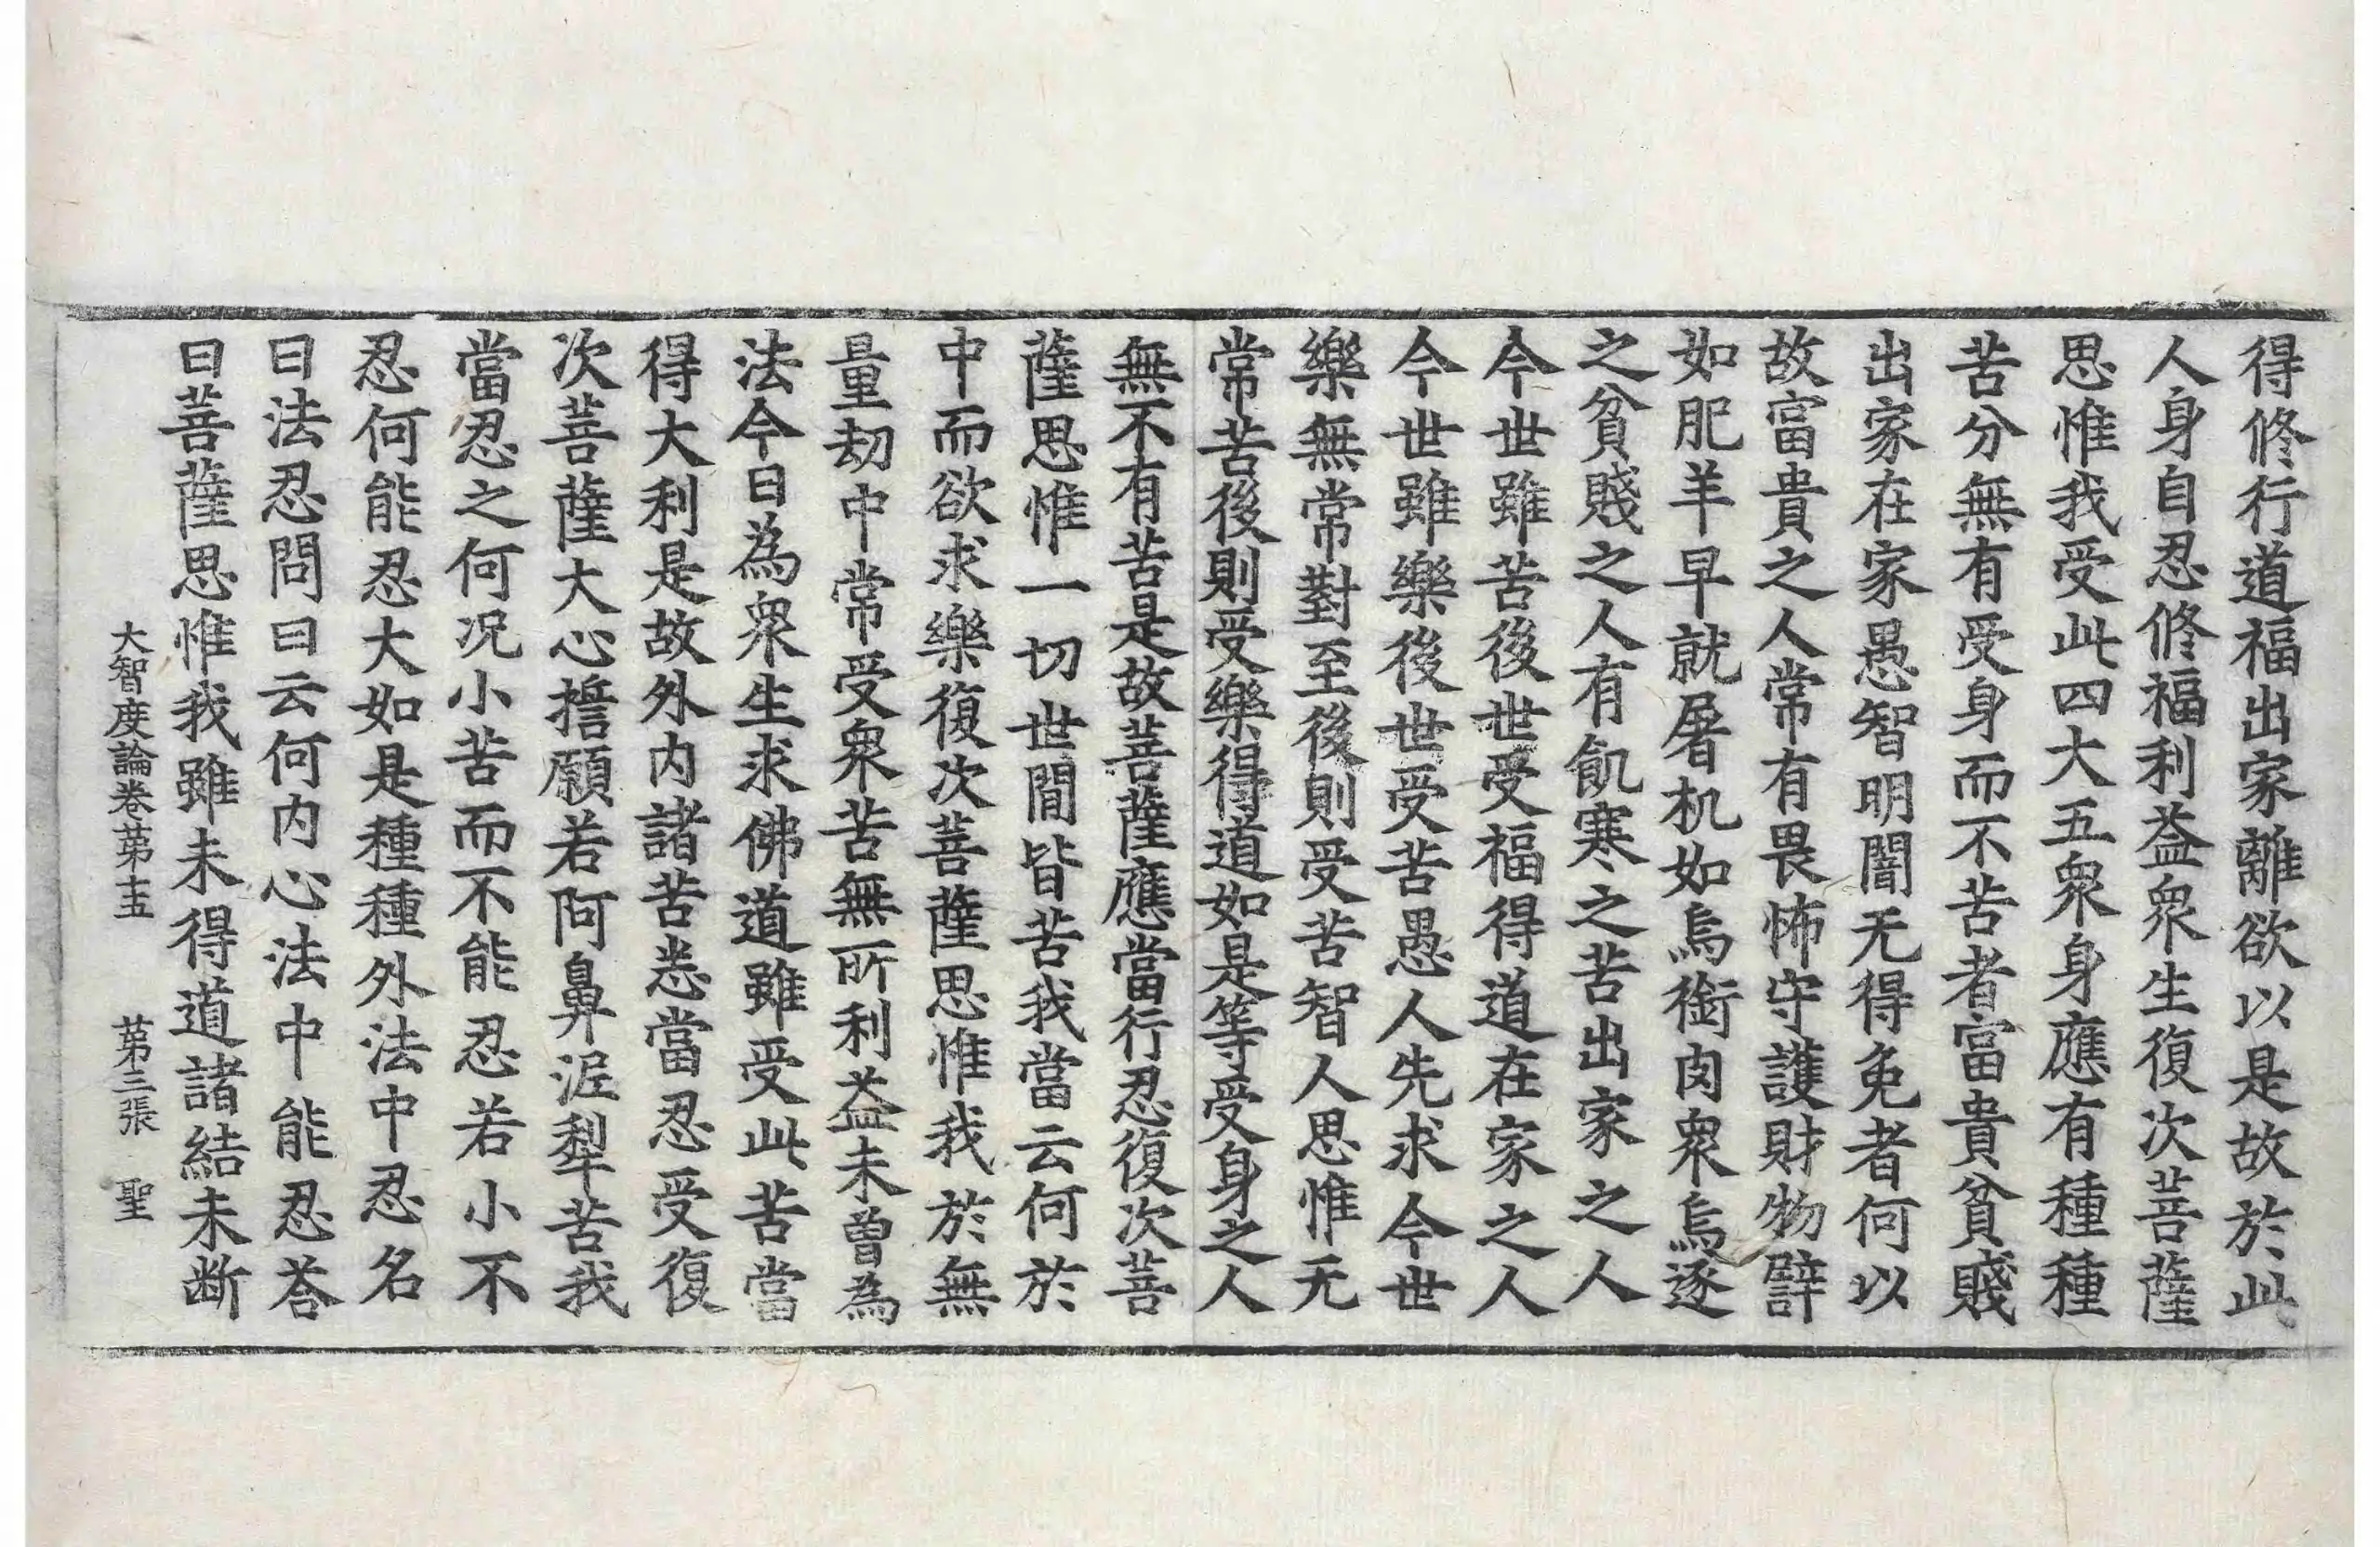 得修行道福出家離欲以是故於此
人身自忍修福利益衆生復次菩薩
思惟我受此四大五衆身應有種種
苦分無有受身而不苦者富貴貧賤
出家在家愚智明闇无得免者何以
故富貴之人常有畏怖守護財物譬
如肥羊早就屠机如烏銜肉衆烏逐
之貧賤之人有飢寒之苦出家之人
今世雖苦後世受福得道在家之人
今世雖樂後世受苦愚人先求今世
樂無常對至後則受苦智人思惟无
常苦後則受樂得道如是等受身之人
無不有苦是故菩薩應當行忍復次菩
薩思惟一切世間皆苦我當云何於
中而欲求樂復次菩薩思惟我於無
量劫中常受衆苦無所利益未曾為
法今日為衆生求佛道雖受此苦當
得大利是故外内諸苦悉當忍受復
次菩薩大心擔願若阿鼻泥犁苦我
當忍之何况小苦而不能忍若小不
忍何能忍大如是種種外法中忍名
曰法忍問曰云何内心法中能忍荅
曰菩薩思惟我雖未得道諸結未斷
大智度論卷第十五　第三張　聖